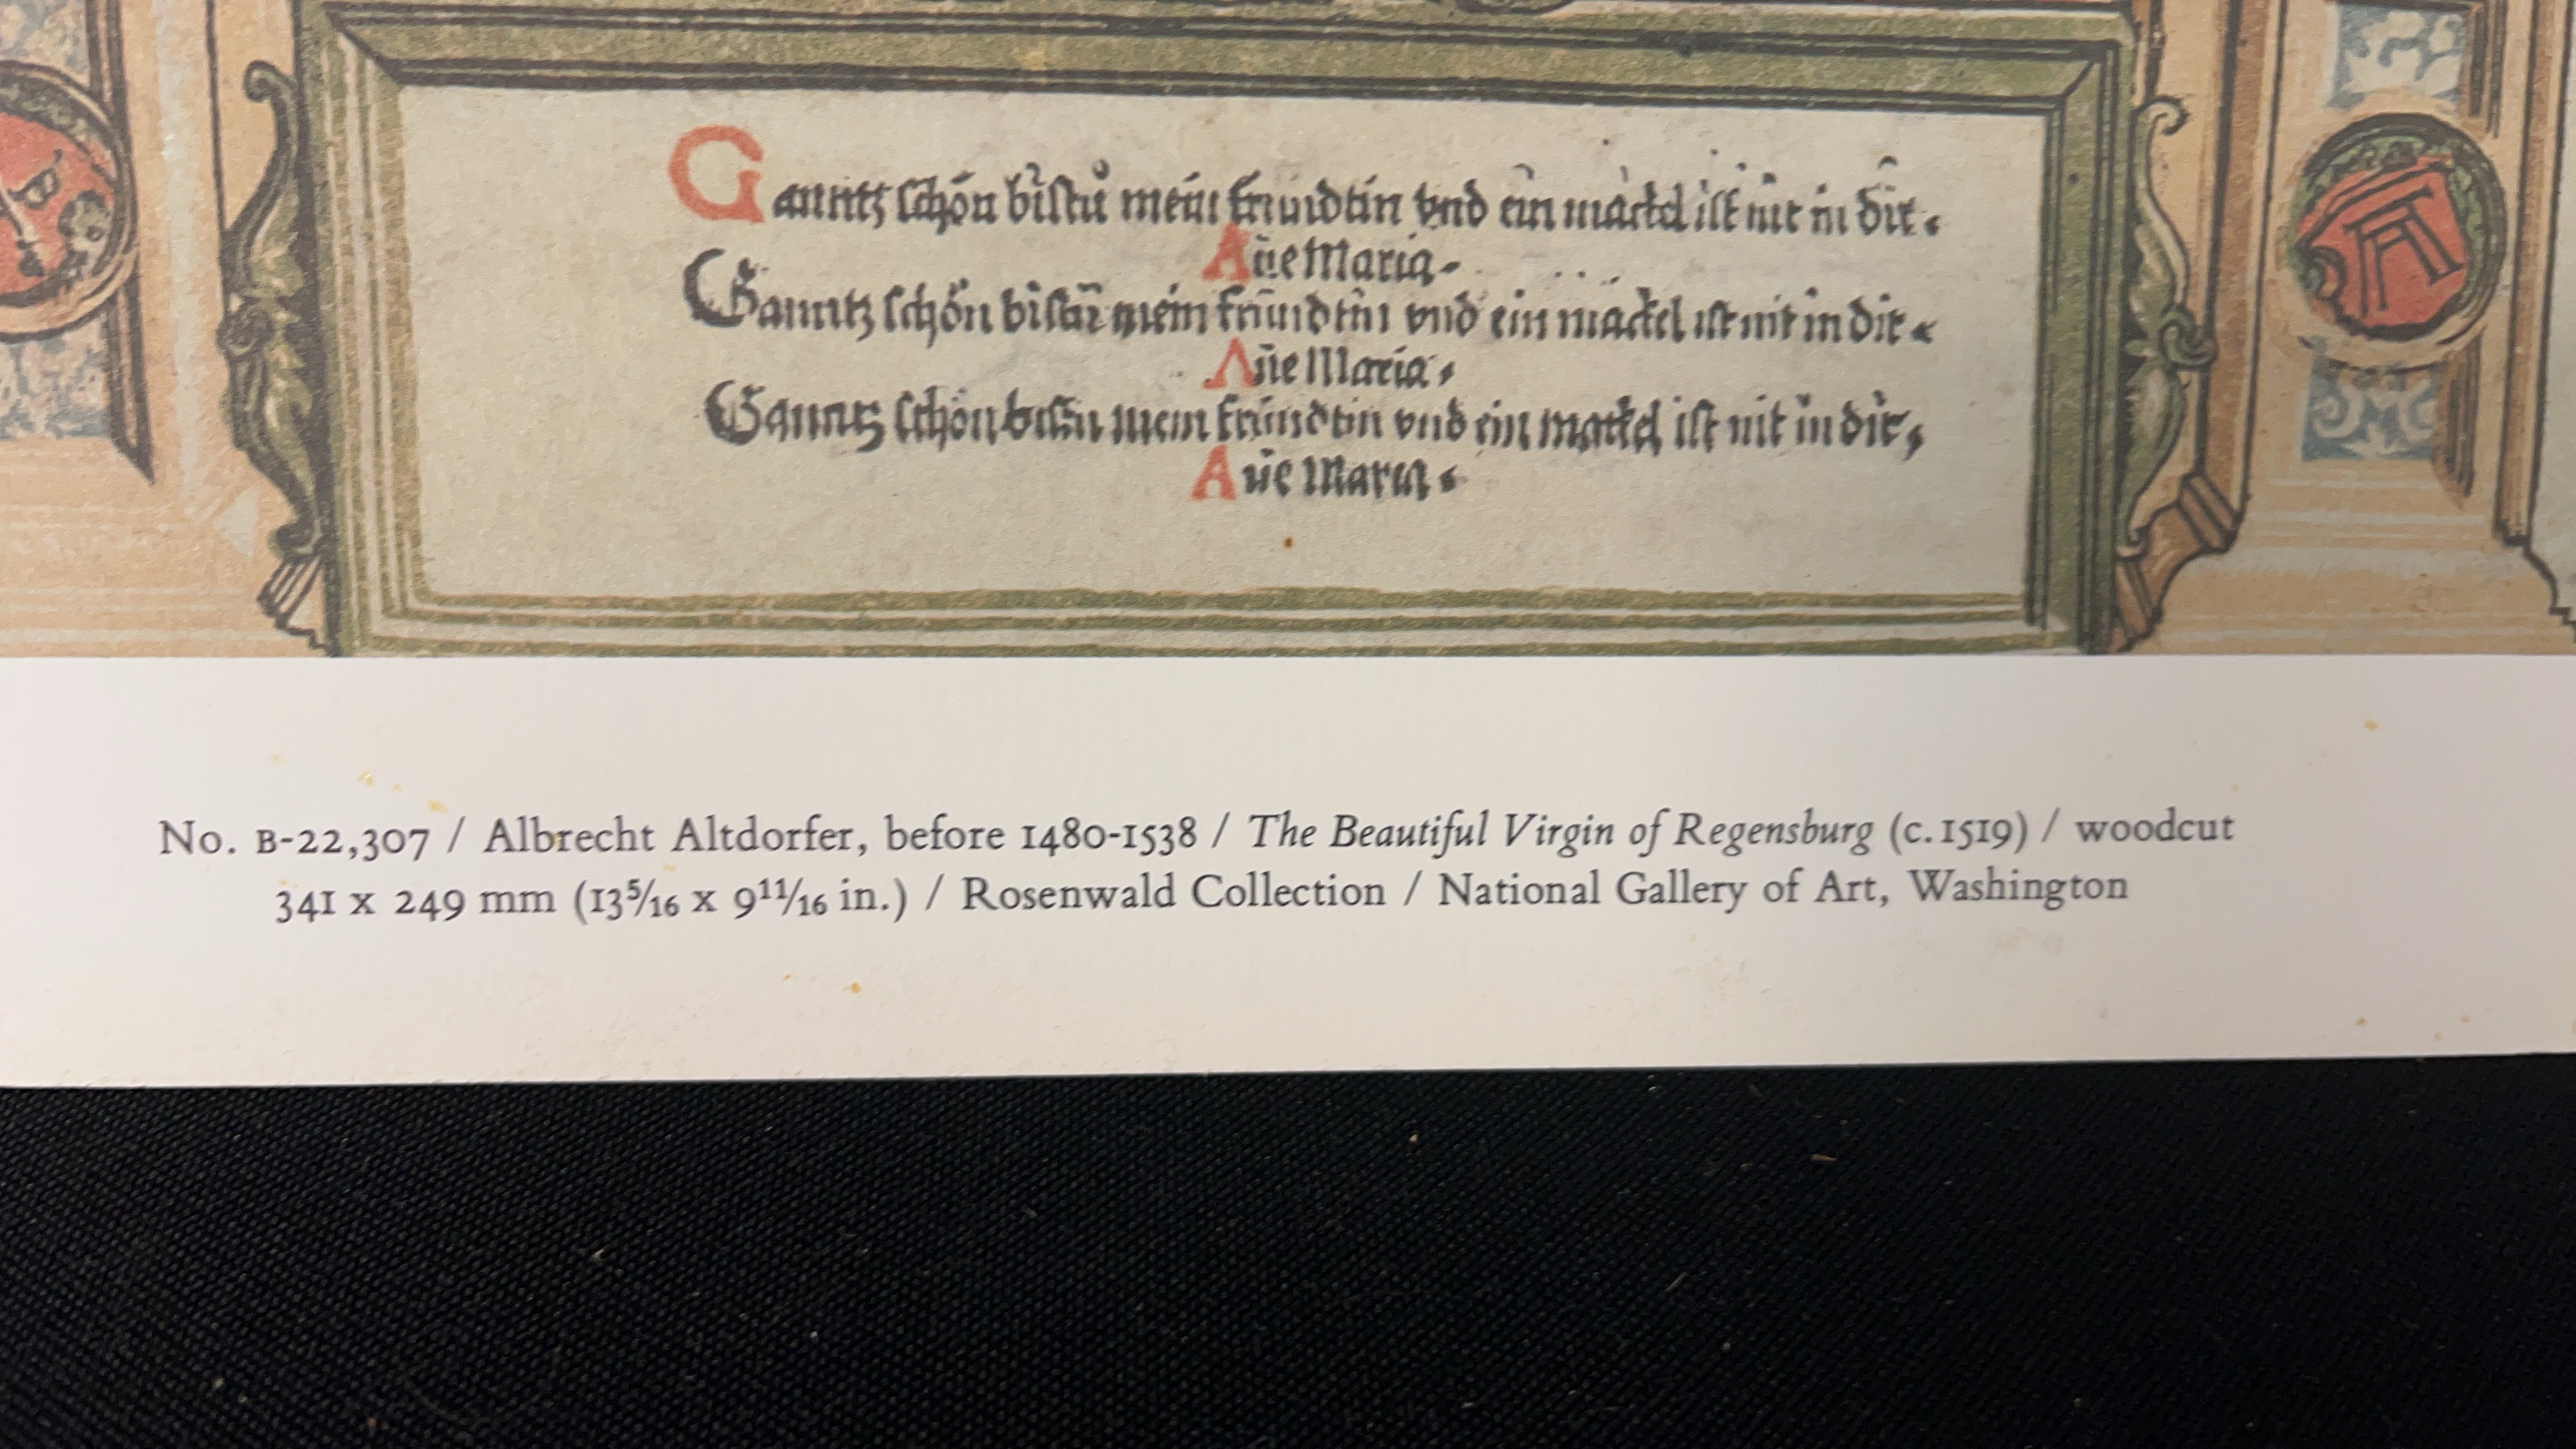 Ganntz schön bistu mein frundtin vnd ein mackel ist nit in dir.
Aue Maria.
Ganntz schön bistu mein frundtin vnd ein mackel ist nit in dir.
Aue Maria.
Ganntz schön bistu mein frundtin vnd ein mackel ist nit in dir,
Aue Maria.
No. B-22,307 / Albrecht Altdorfer, before 1480-1538 / The Beautiful Virgin of Regensburg (c.1519) / woodcut
341 x 249 mm (13 5/16 x 9 11/16 in.) / Rosenwald Collection / National Gallery of Art, Washington